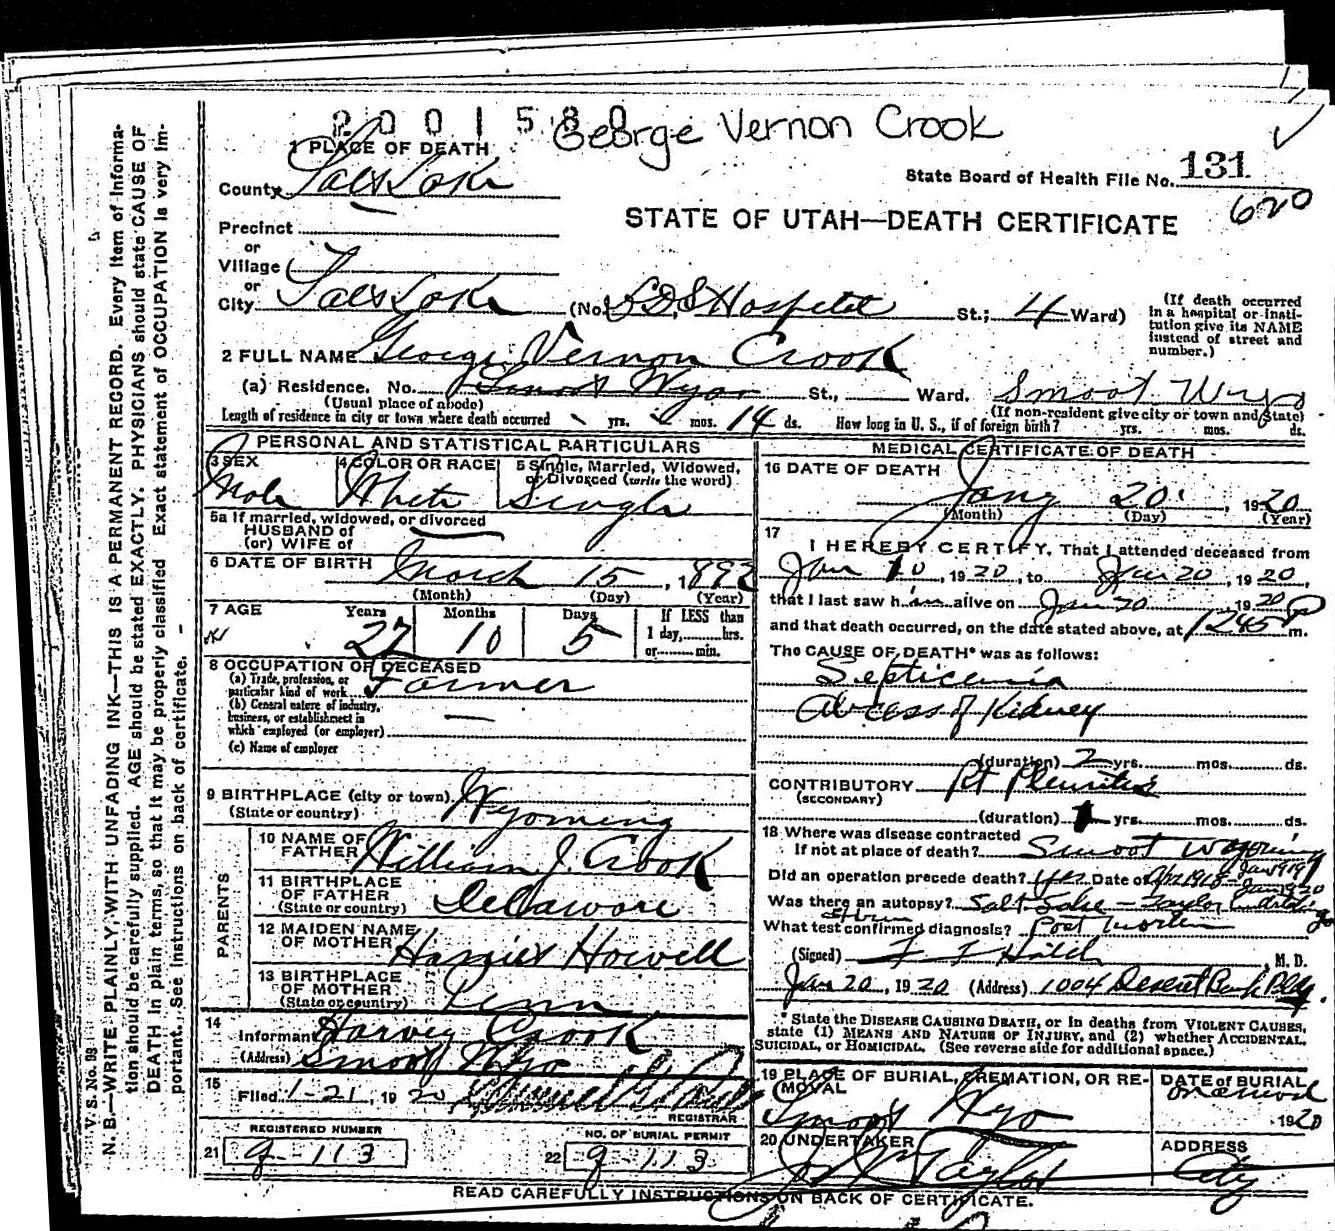 2001580 George Vernon Crook
1 PLACE OF DEATH
State Board of Health File No. 131
County Salt Lake
620
STATE OF UTAH—DEATH CERTIFICATE
Precinct
or
Village
or
City Salt Lake (No. L.D.S Hospital St.; 4 Ward)
(If death occurred in a hospital or insti-
tution give its NAME
instead of street and
number.)
2 FULL NAME George Vernon Crook
(a) Residence. No. Smoot Wyo St., Ward. Smoot Wyo
(Usual place of abode) (If non-resident give city or town and State)
Length of residence in city or town where death occurred yrs. mos. 14 ds. How long in U. S., if of foreign birth? yrs. mos. ds.
PERSONAL AND STATISTICAL PARTICULARS
3 SEX 4 COLOR OR RACE 5 Single, Married, Widowed,
or Divorced (write the word)
Male White Single
5a If married, widowed, or divorced
HUSBAND of
(or) WIFE of
6 DATE OF BIRTH March 15, 1892
(Month) (Day) (Year)
7 AGE Years Months Days If LESS than
1 day,......hrs.
or......min.
27 10 5
8 OCCUPATION OF DECEASED
(a) Trade, profession, or
particular kind of work Farmer
(b) General nature of industry,
business, or establishment in
which employed (or employer) —
(c) Name of employer
9 BIRTHPLACE (city or town) Wyoming
(State or country)
PARENTS
10 NAME OF
FATHER William J. Crook
11 BIRTHPLACE
OF FATHER
(State or country) Delaware
12 MAIDEN NAME
OF MOTHER Harriet Howell
13 BIRTHPLACE
OF MOTHER
(State or country) Penn
14 Informant Harvey Crook
(Address) Smoot Wyo
15 Filed 1-21, 1920
REGISTRAR
REGISTERED NUMBER NO. OF BURIAL PERMIT
21 g-113 22 g-113
MEDICAL CERTIFICATE OF DEATH
16 DATE OF DEATH
Jany 20, 1920
(Month) (Day) (Year)
17 I HEREBY CERTIFY, That I attended deceased from
Jan 10, 1920, to Jan 20, 1920,
that I last saw him alive on Jan 20 1920
and that death occurred, on the date stated above, at 1245 P m.
The CAUSE OF DEATH* was as follows:
Septicemia
Abcess of Kidney
(duration) 2 yrs. mos. ds.
CONTRIBUTORY Rt Pleuritis
(SECONDARY)
(duration) 1 yrs. mos. ds.
18 Where was disease contracted
If not at place of death? Smoot Wyoming
Did an operation precede death? yes Date of Apr 1918 - Jan 1919 - Jan 1920
Was there an autopsy? Salt Lake - Taylor
What test confirmed diagnosis? Post Mortem
(Signed) F F Hatch, M. D.
Jan 20, 1920 (Address) 1004 Deseret Bank Bldg.
* State the DISEASE CAUSING DEATH, or in deaths from VIOLENT CAUSES,
state (1) MEANS AND NATURE OF INJURY, and (2) whether ACCIDENTAL,
SUICIDAL, or HOMICIDAL. (See reverse side for additional space.)
19 PLACE OF BURIAL, CREMATION, OR RE-
MOVAL
Smoot Wyo
DATE of BURIAL
1920
20 UNDERTAKER
Taylor
ADDRESS
City
READ CAREFULLY INSTRUCTIONS ON BACK OF CERTIFICATE.
V. S. No. 89
N. B.—WRITE PLAINLY, WITH UNFADING INK—THIS IS A PERMANENT RECORD. Every item of Informa-
tion should be carefully supplied. AGE should be stated EXACTLY. PHYSICIANS should state CAUSE OF
DEATH in plain terms, so that it may be properly classified. Exact statement of OCCUPATION is very im-
portant. See instructions on back of certificate.